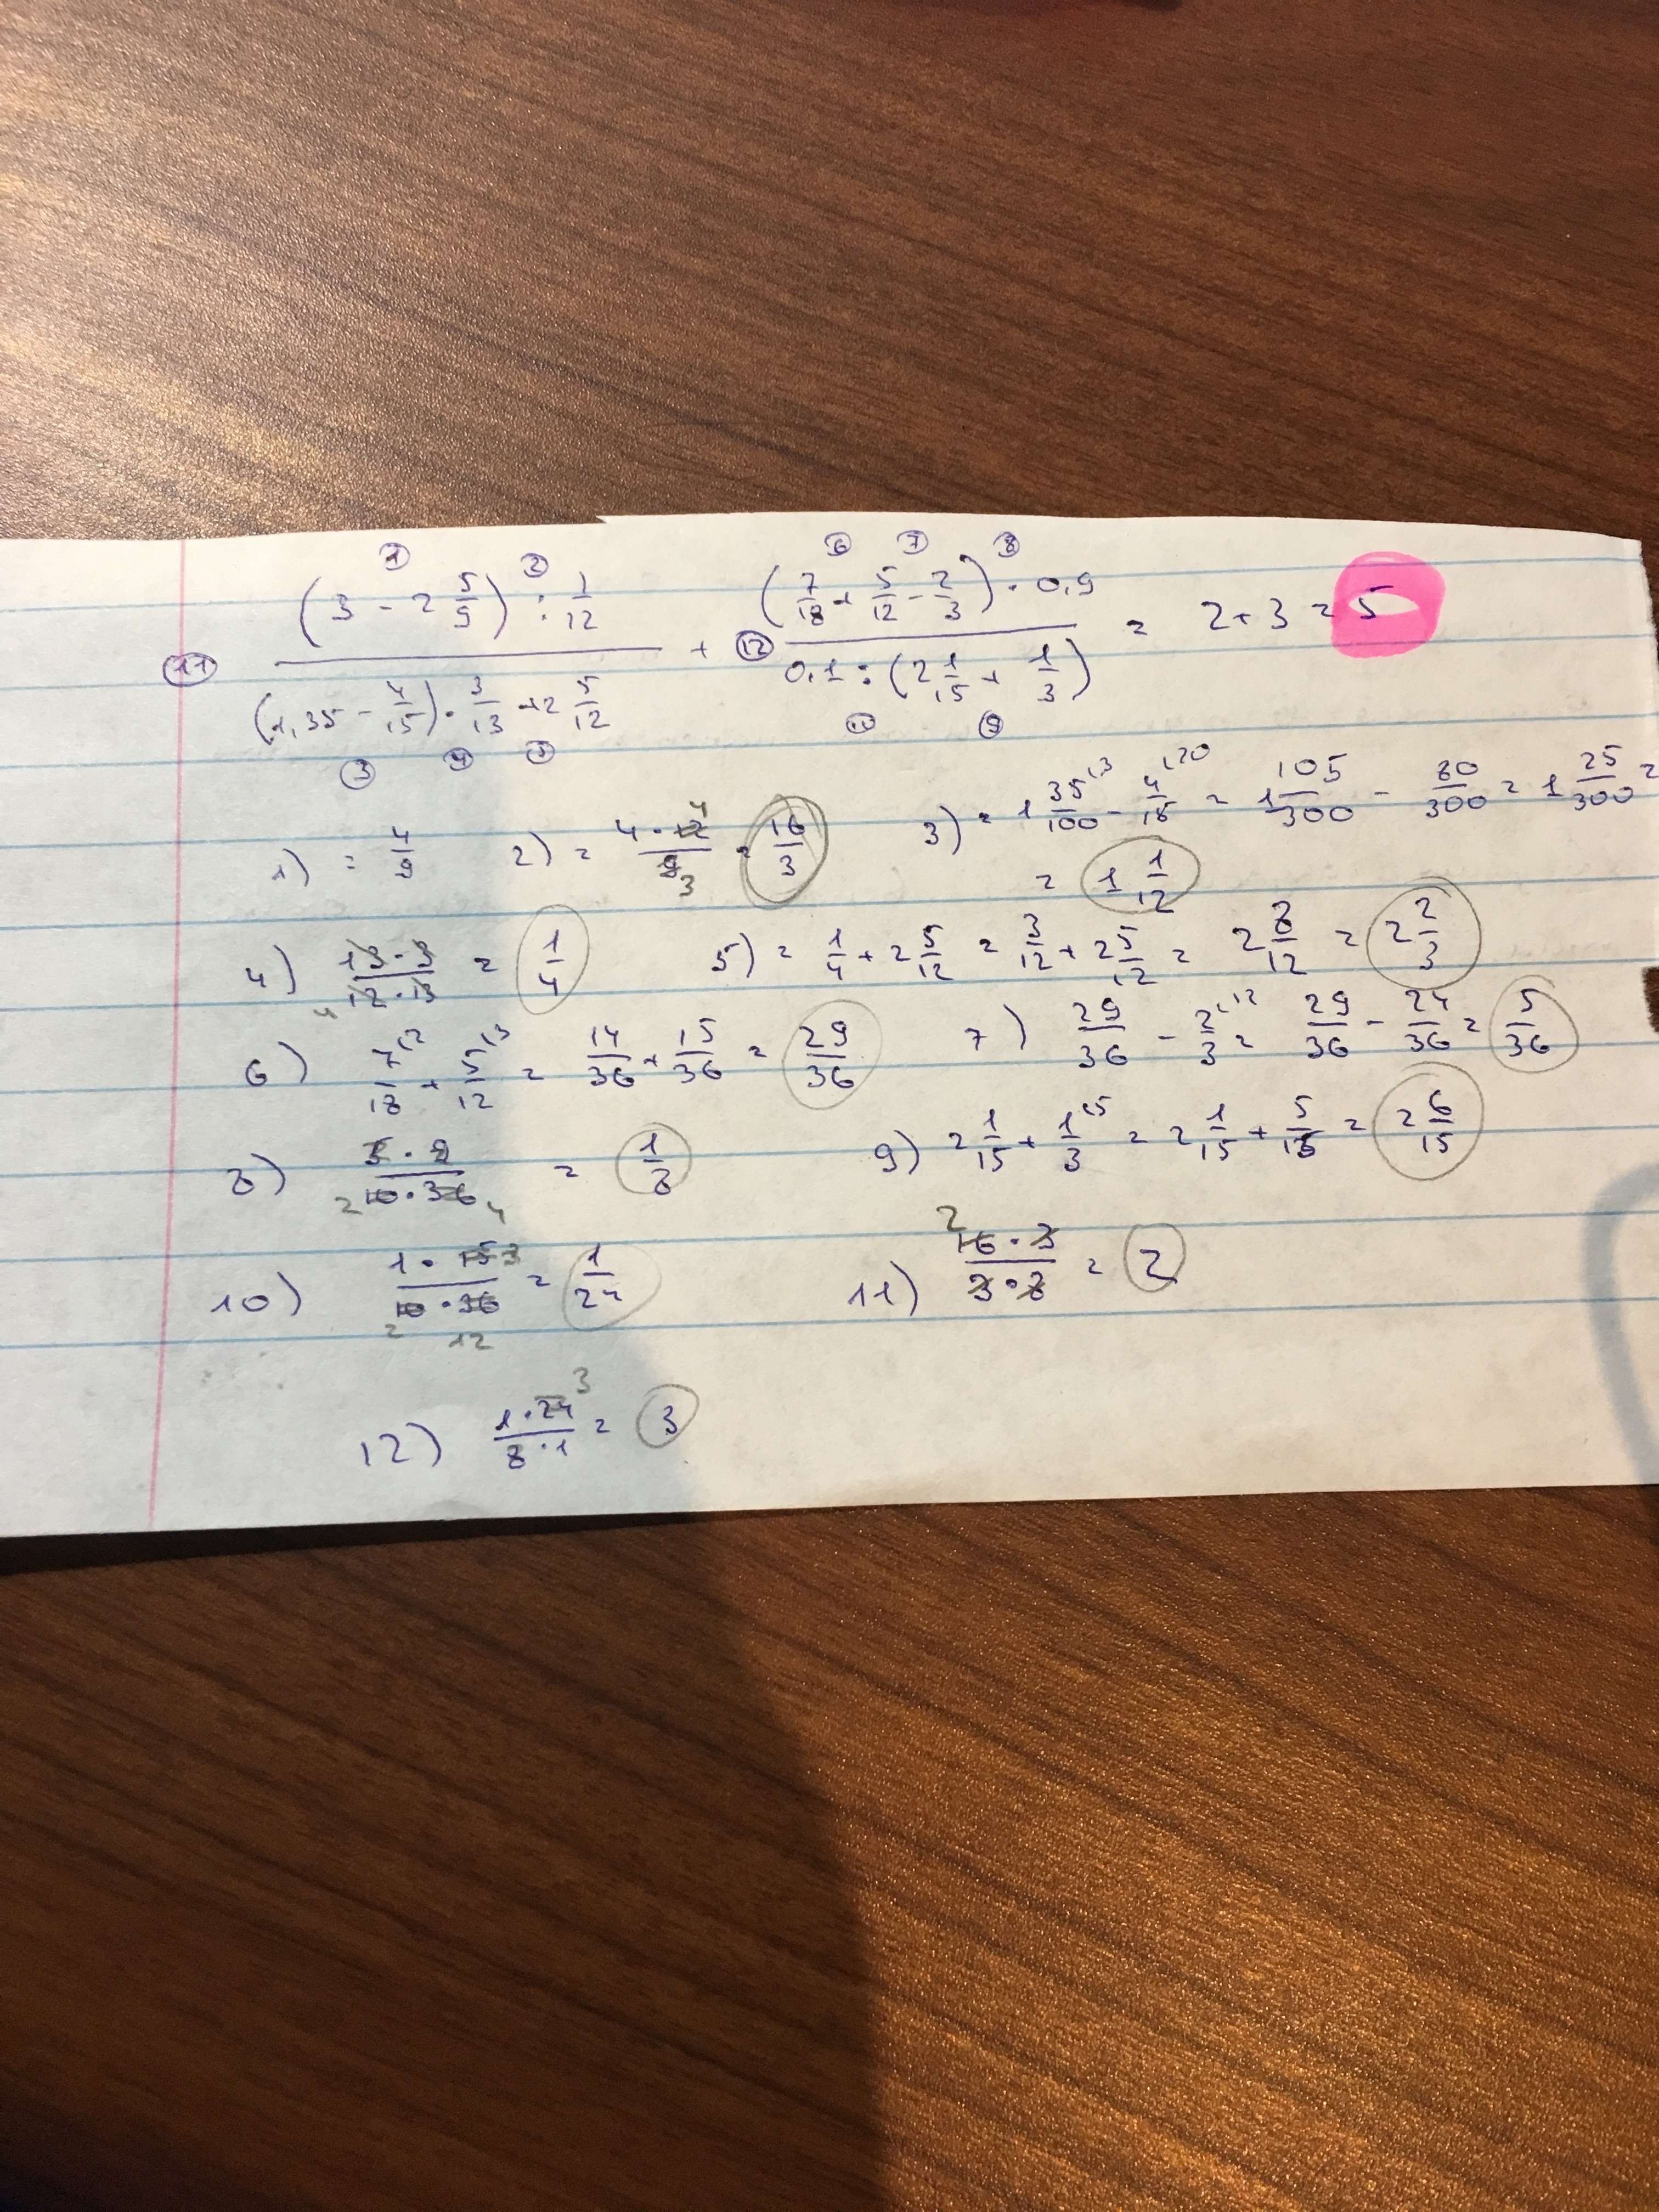 ① ② ⑥ ⑦ ⑧
(3 - 2 5/9) : 1/12 (7/18 + 5/12 - 2/3) · 0,9
⑪ + ⑫ = 2 + 3 = 5
(1,35 - 4/15) · 3/13 + 2 5/12 0,1 : (2 1/15 + 1/3)
③ ④ ⑤ ⑩ ⑨
1) = 4/9 2) = 4 · 12 4/9 3 = 16/3 3) = 1 35⁽³/100 - 4⁽²⁰/15 = 1 105/300 - 80/300 = 1 25/300 =
= 1 1/12
4) 13 · 3/4 12 · 13 = 1/4 5) = 1/4 + 2 5/12 = 3/12 + 2 5/12 = 2 8/12 = 2 2/3
6) 7⁽²/18 + 5⁽³/12 = 14/36 + 15/36 = 29/36 7) 29/36 - 2⁽¹²/3 = 29/36 - 24/36 = 5/36
8) 5 · 9/2 10 · 36 4 = 1/8 9) 2 1/15 + 1⁽⁵/3 = 2 1/15 + 5/15 = 2 6/15
10) 1 · 15 3/10 · 36 2 12 = 1/24 11) 2 16 · 3/3 · 8 = 2
12) 1 · 24 3/8 · 1 = 3